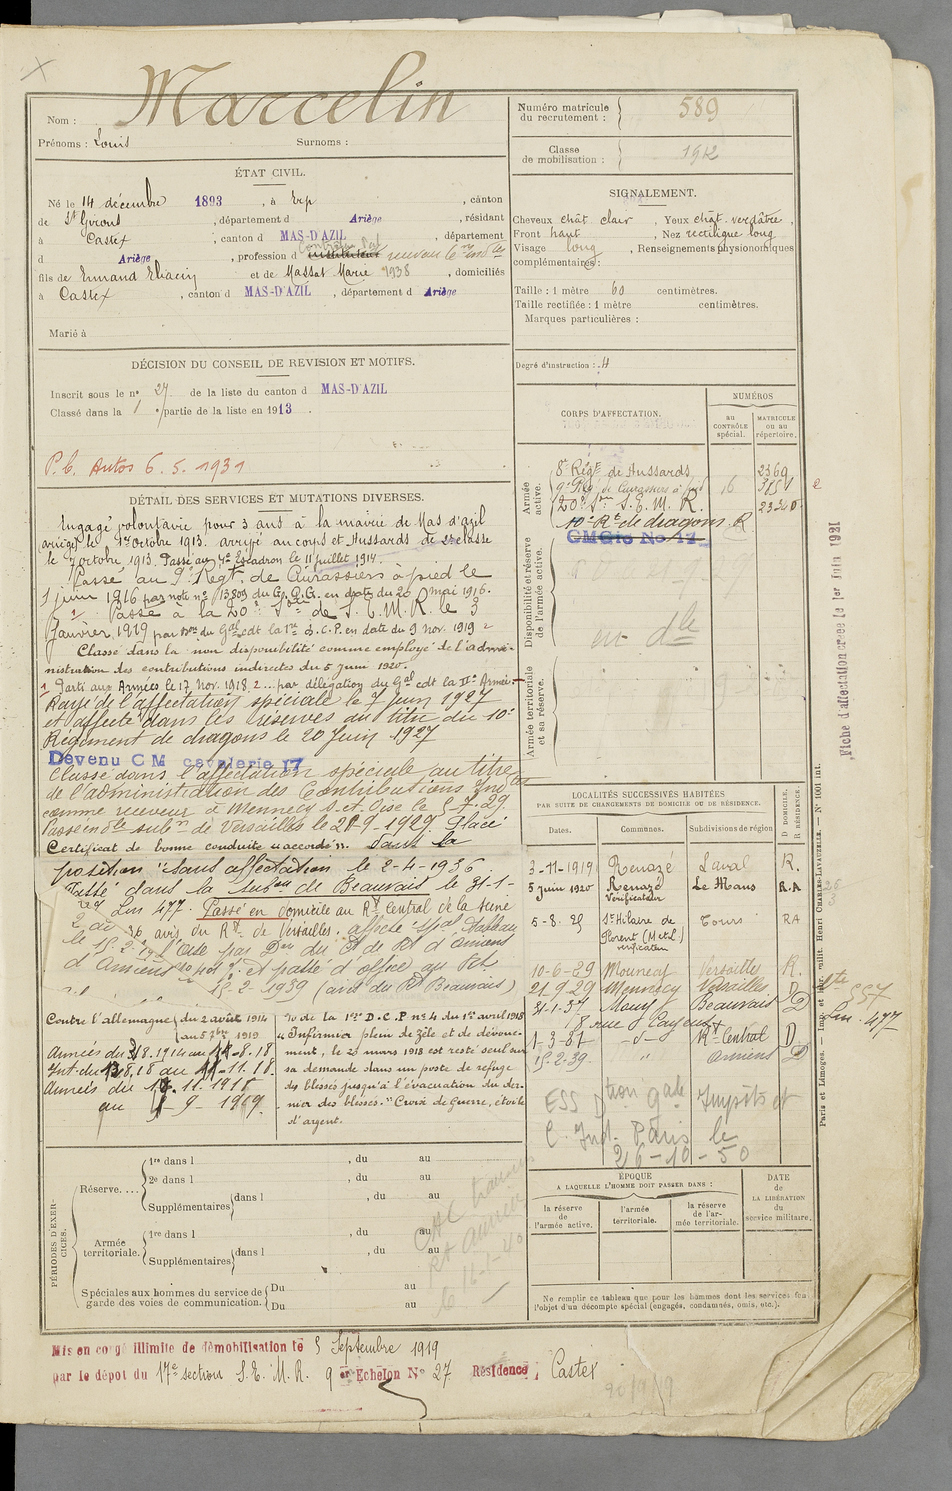 Marcelin
Nom :
Prénoms : Louis Surnoms :
ÉTAT CIVIL.
Né le 14 décembre 1893, à Erp, canton
de St Girons, département d Ariège, résidant
à Castex, canton d MAS-D'AZIL, département
d Ariège, profession d instituteur receveur
fils de et de Massat Marie 1938, domiciliés
à Castex, canton d MAS-D'AZIL, département d Ariège
Marié à
DÉCISION DU CONSEIL DE REVISION ET MOTIFS.
Inscrit sous le n° 27 de la liste du canton d MAS-D'AZIL
Classé dans la 1 partie de la liste en 1913.
P.C. Autos 6.5.1931
DÉTAIL DES SERVICES ET MUTATIONS DIVERSES.
Engagé volontaire pour 3 ans à la mairie de Mas d'azil
(ariège) le 1er octobre 1913. arrivé au corps et Hussards de 2e classe
le 7 octobre 1913. Passé au 4e Escadron le 11 juillet 1914.
Passé au 9e Regt. de Cuirassiers à pied le
1 juin 1916 par note n° 13809 du G. Q. G. en date du 20 mai 1916.
Passé à la 20e Son de S. E. M. R. le 3
Janvier 1919 par du Gal cdt la 1re D.C.P. en date du 9 nov. 1919
Classé dans la non disponibilité comme employé de l'admi-
nistration des contributions indirectes du 5 juin 1920.
Parti aux Armées le 17 Nov. 1918 2... par délégation du Gal cdt la IIe Armée.
Rayé de l'affectation spéciale le 7 juin 1927
et affecté dans les réserves du titre du 10e
Régiment de dragons le 20 Juin 1927
Devenu CM cavalerie 17
Classé dans l'affectation spéciale au titre
de l'administration des Contributions Indtes
comme receveur à Mennecy S. et. Oise le 5.7.29.
Passé en dle subn de Versailles le 21-9-1929. Placé
Certificat de bonne conduite "accordé". dans la
position "sans affectation le 2-4-1936
Passé dans la subon de Beauvais le 31-1-
Lm 477. Passé en domicile au Rt Central de la Seine
avis du Rt de Versailles. affecté
d'Amiens et passé d'office au Rct
15-2-1939 (avis du Rt Beauvais)
Contre l'allemagne du 2 août 1914
au 5 7bre 1919
Armées du 3.8.1914 au 12-8-18
Int. du 13.8.18 au 16-11.18.
Armées du 17.11.1918
au 4-9-1919.
70 de la 1re D.C.P. n° 4 du 1er avril 1918
"Infirmier plein de zèle et de dévoue-
ment, le 20 mars 1918 est resté seul sur
sa demande dans un poste de refuge
des blessés jusqu'à l'évacuation du der-
nier des blessés." Croix de Guerre, étoile
d'argent.
PÉRIODES D'EXER-
CICES.
Réserve....
1re dans l , du au
2e dans l , du au
Supplémentaires dans l , du au
Armée
territoriale.
1re dans l , du au
Supplémentaires dans l , du au
Spéciales aux hommes du service de
garde des voies de communication.
Du au
Du au
Mis en congé illimité de démobilisation le 5 Septembre 1919
par le dépot du 17e section S. E. M. R. 9 er Echelon N° 27 Résidence : Castex
Numéro matricule
du recrutement : 589
Classe
de mobilisation : 1912
SIGNALEMENT.
Cheveux chât clair, Yeux chat. verdâtre,
Front haut, Nez rectiligne long
Visage long, Renseignements physionomiques
complémentaires :
Taille : 1 mètre 60 centimètres.
Taille rectifiée : 1 mètre centimètres.
Marques particulières :
Degré d'instruction : 4
CORPS D'AFFECTATION.
NUMÉROS
au
CONTRÔLE
spécial.
MATRICULE
ou au
répertoire.
Armée
active.
8e Régt de Hussards 2369
9e Reg de Cuirassiers à pied 16 3151
20e Son S. E. M. R. 2334
10e Rt de dragons. R
CMCie No 17
Disponibilité et réserve
de l'armée active.
en dle
Armée territoriale
et sa réserve.
Fiche d'affectation créée le 1er Juin 1921
LOCALITÉS SUCCESSIVES HABITÉES
PAR SUITE DE CHANGEMENTS DE DOMICILE OU DE RÉSIDENCE.
Dates. Communes. Subdivisions de région
D DOMICILE,
R RÉSIDENCE.
3-11-1919 Renazé Laval R.
5 juin 1920 Renazé Le Mans R.A
Vérificateur
5-8-25 St Hilaire de Tours RA
Florent (M et L)
vérificateur
10-6-29 Mennecy Versailles R.
21.9.29 Mennecy Versailles D
31-1-37 Mouy Beauvais D
18 rue
1-3-37 -d- Rt Central D.
15.2.39. " Amiens D
Lm. 477
ESS Dtion Gale Impôts et
C. Ind. Paris le
26-10-50
ÉPOQUE
A LAQUELLE L'HOMME DOIT PASSER DANS :
la réserve
de
l'armée active.
l'armée
territoriale.
la réserve
de l'ar-
mée territoriale.
DATE
de
LA LIBÉRATION
du
service militaire.
Ne remplir ce tableau que pour les hommes dont les services font
l'objet d'un décompte spécial (engagés, condamnés, omis, etc.).
Paris et Limoges. — Imp. et libr. milit. Henri CHARLES-LAVAUZELLE. — N° 1001 int.